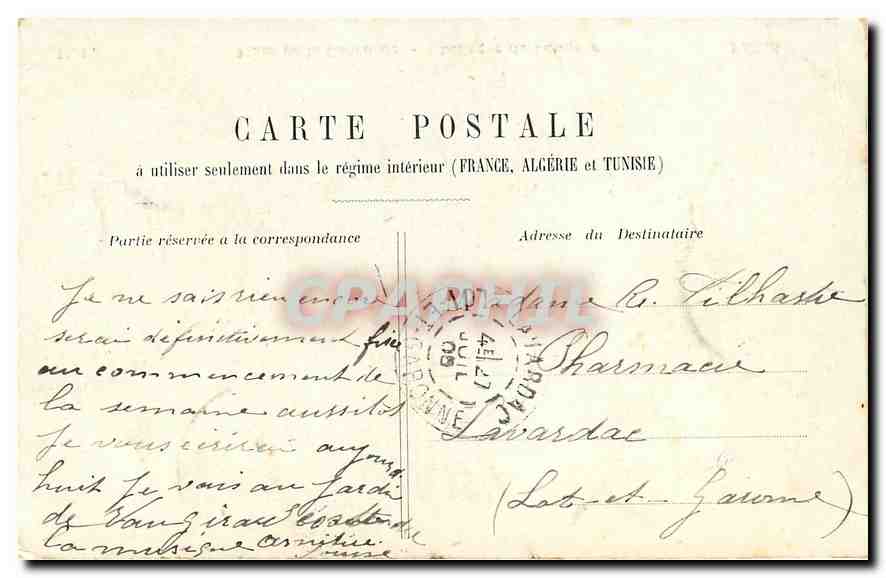 CARTE POSTALE
à utiliser seulement dans le régime intérieur (FRANCE, ALGÉRIE et TUNISIE)
Partie réservée a la correspondance
Je ne sais rien encore
serai définitivement fixée
au commencement de
la semaine aussitôt
Je vous écrirai aujourd
huit Je vais au Jardin
de Vaugirard
la musique
Adresse du Destinataire
Madame
Pharmacie
Lavardac
(Lot-et-Garonne)
LAVARDAC
4E /27
JUIL
09
LOT-ET-GARONNE
CPARHIL